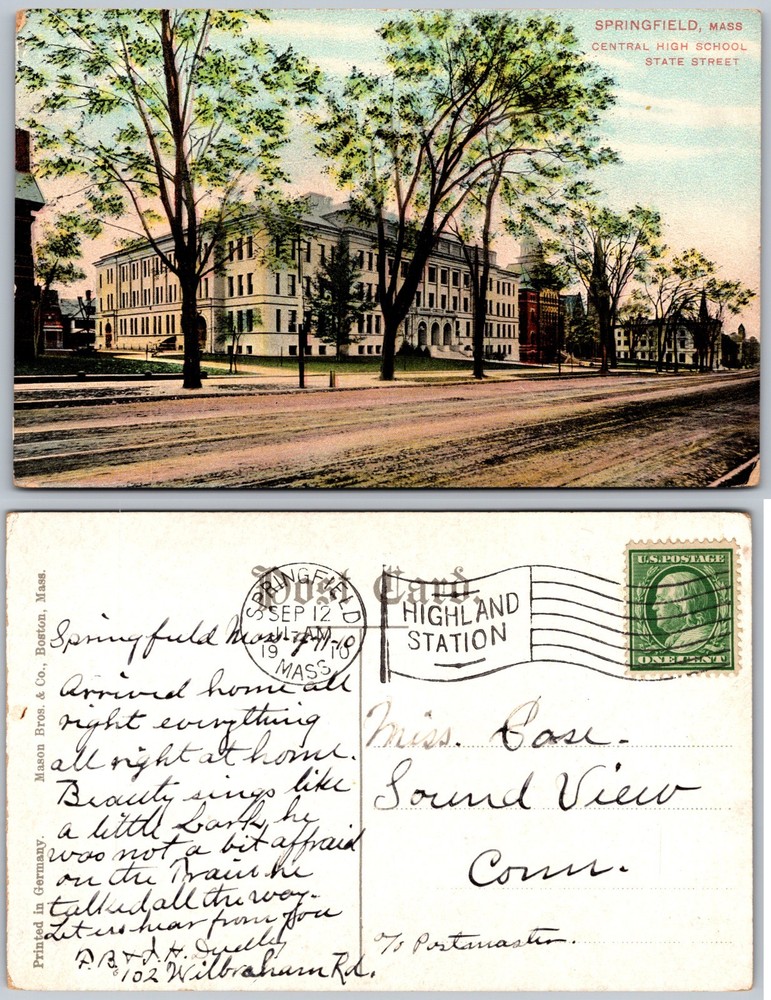 SPRINGFIELD, MASS
CENTRAL HIGH SCHOOL
STATE STREET
Post Card.
SPRINGFIELD
SEP 12
11-AM
19 10
MASS.
HIGHLAND
STATION
U.S. POSTAGE
ONE CENT
Printed in Germany. Mason Bros. & Co., Boston, Mass.
Springfield Mass
Arrived home all
right everything
all right at home.
Beauty sings like
a little Lark, he
was not a bit affraid
on the Train he
talked all the way.
Let us hear from you
F. B. & J. H. Dudley
102 Wilbraham Rd.
Miss. Case.
Sound View
Conn.
c/o Postmaster.